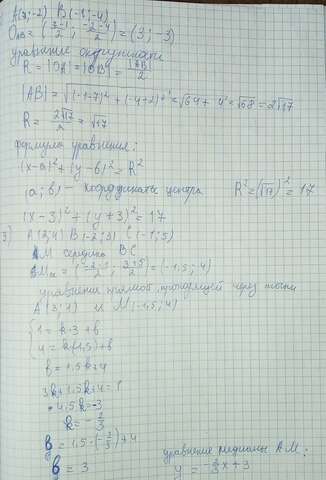 A(7;-2) B(-1;-4)
O_AB = (7-1/2; -2-4/2) = (3; -3)
уравнение окружности
R = |OA| = |OB| = |AB|/2
|AB| = √(-1-7)² + (-4+2)² = √64 + 4 = √68 = 2√17
R = 2√17/2 = √17
формула уравнения:
(x-a)² + (y-b)² = R²
(a; b) - координаты центра R² = (√17)² = 17
(x-3)² + (y+3)² = 17
A(3;1) B(-2;3) C(-1;5)
AM середина BC
= (-2-1/2; 3+5/2) = (-1,5; 4)
уравнение прямой, проходящей через точки
A(3; 1) и M(-1,5; 4)
1 = k·3 + b
4 = k(-1,5) + b
b = 1,5k+4
3k + 1,5k + 4 = 1
4,5k = -3
k = -2/3
b = 1,5·(-2/3) + 4
b = 3
уравнение медианы AM:
y = -2/3x + 3